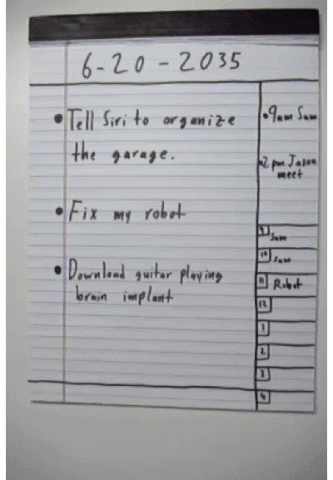 6-20-2035
• Tell Siri to organize
the garage.
• Fix my robot
• Download guitar playing
brain implant
• 9am Sam
• 2pm Jason
meet
9 Sam
10 Sam
11 Robot
12
1
2
3
4